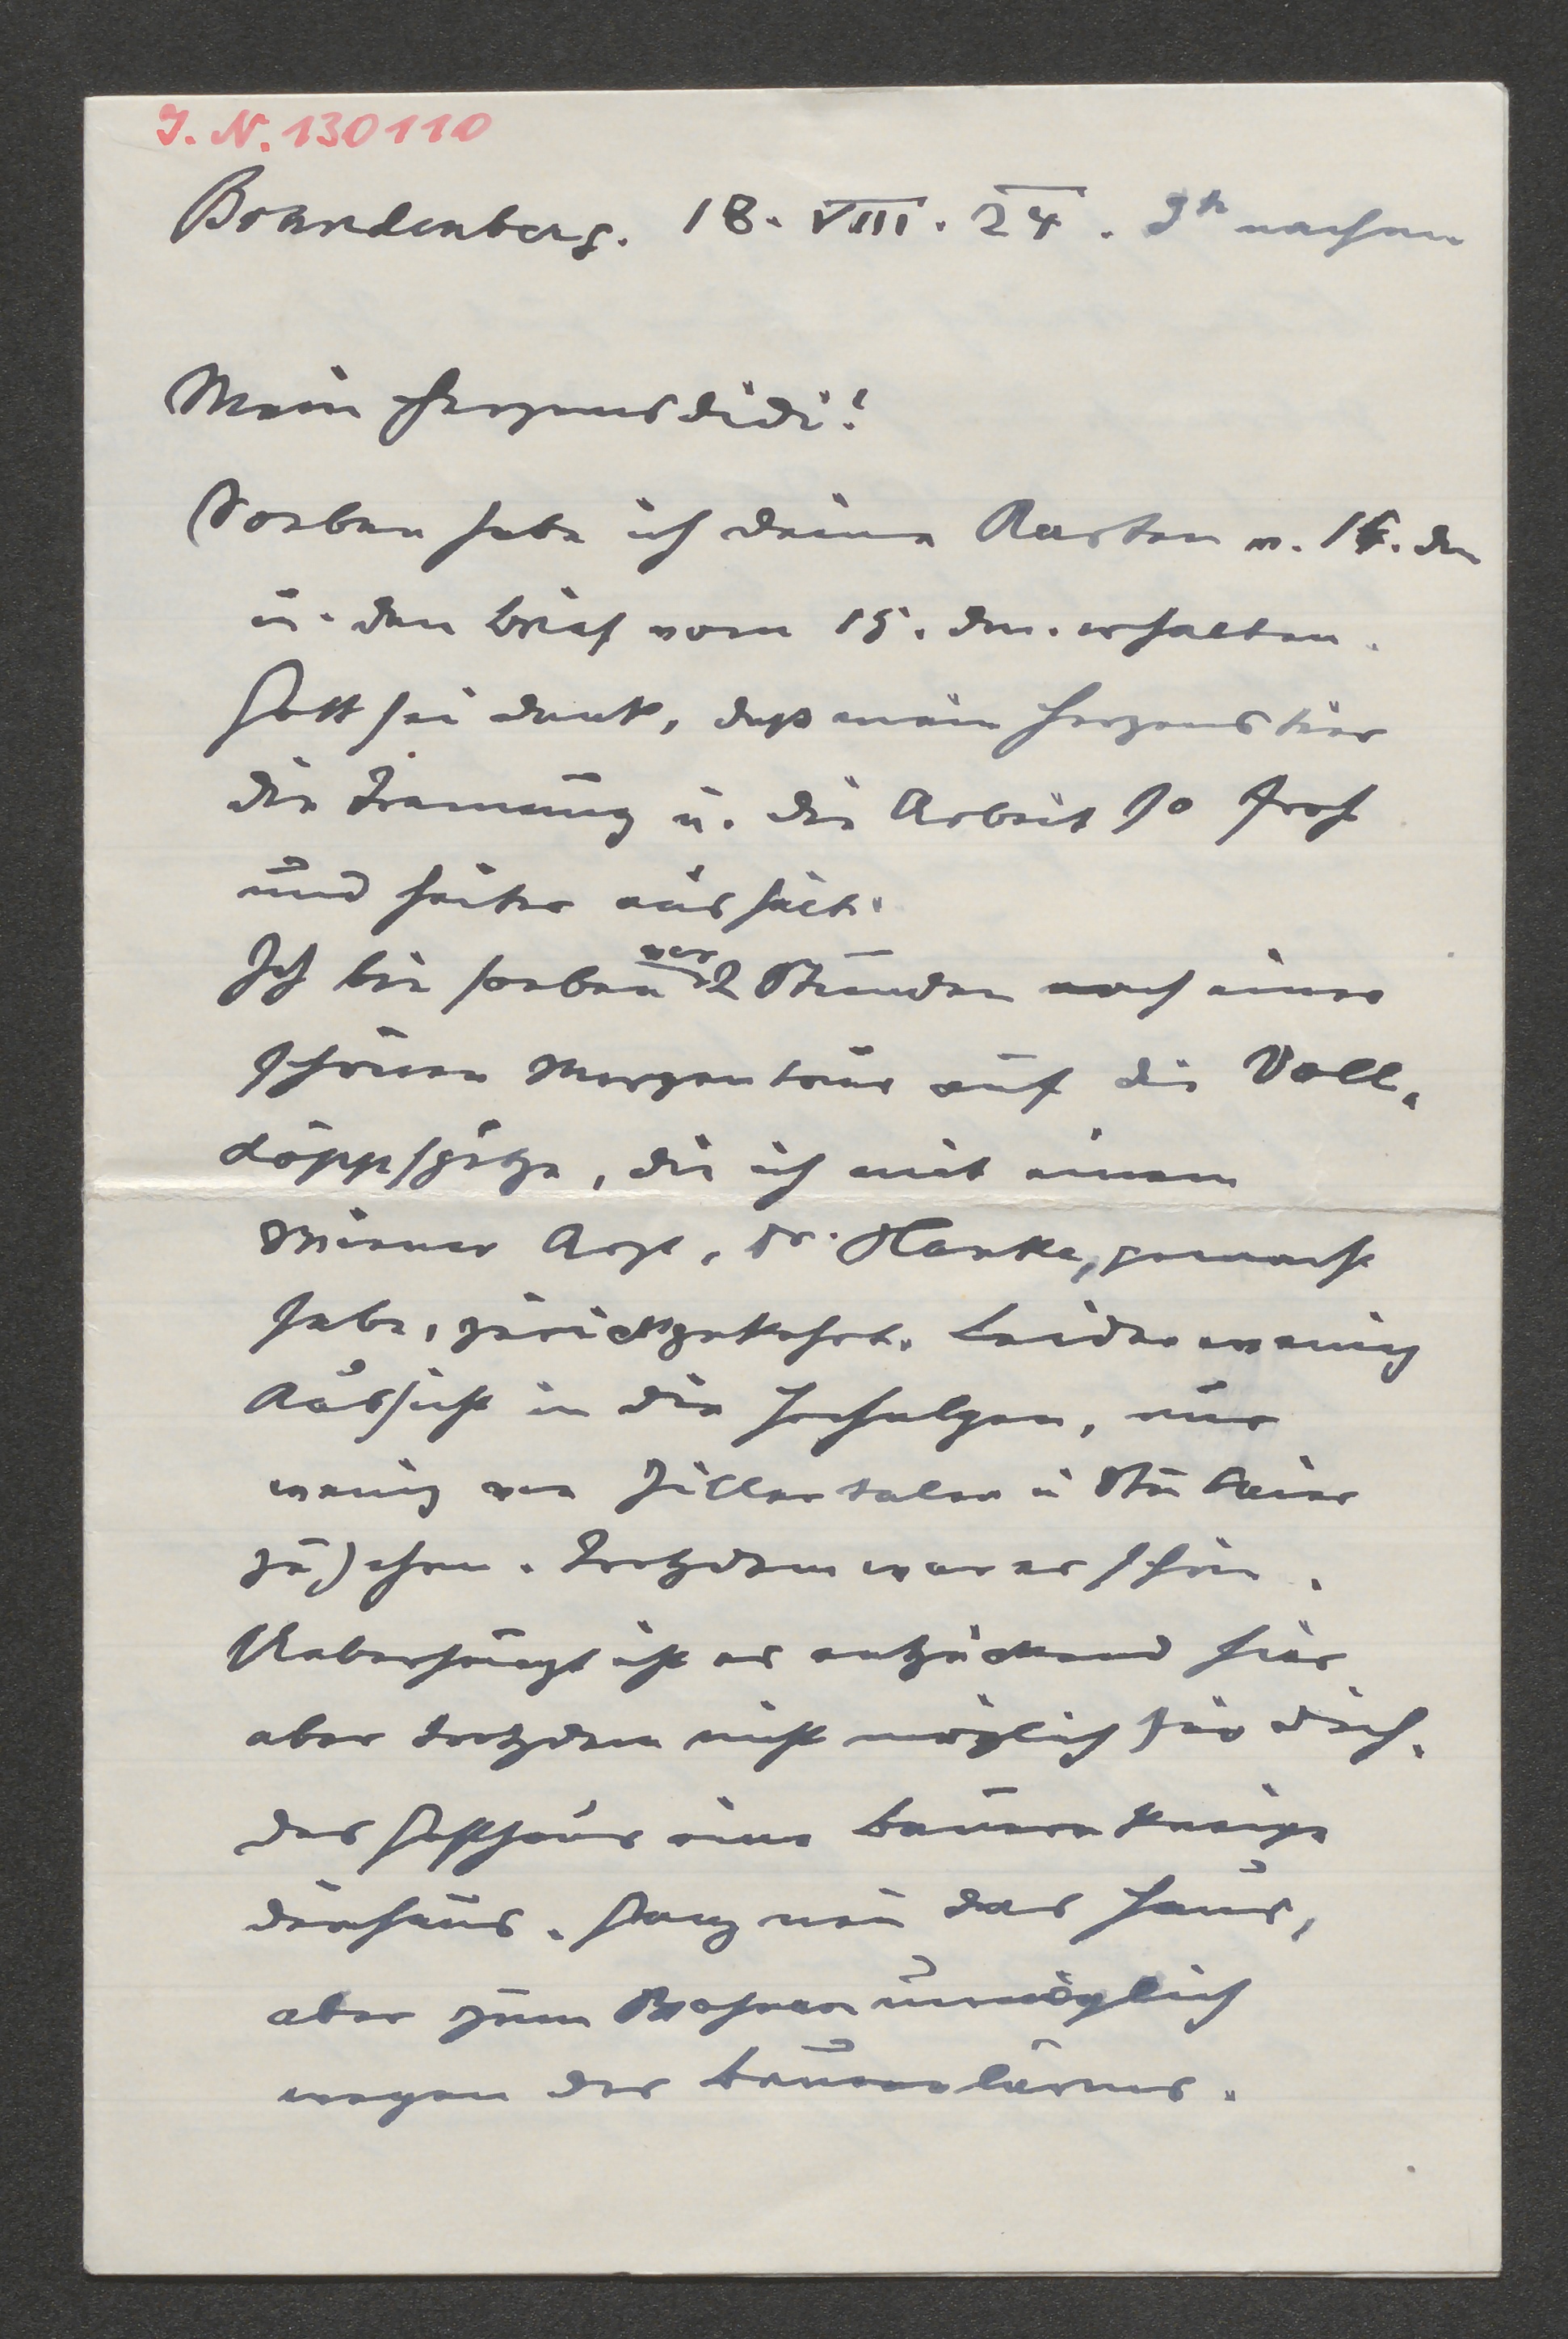 I. N. 130110
Brandenberg. 18. VIII. 24. 3h nachm
Mein Herzensdidi!
Soeben habe ich deine Karten v. 14. dm
u. den Brief vom 15. dm. erhalten.
Gott sei dank, daß mein Herzenstier
die Trennung u. die Arbeit so froh
und heiter aushält.
Ich bin soeben vor 2 Stunden nach einer
schönen Morgentour auf die Voll-
döppspitze, die ich mit einem
Wiener Arzt, Dr. Hanke, gemacht
habe, zurückgekehrt. Leider wenig
Aussicht in die Hochalpen, nur
wenig von Zillertaler u Stubaier
zu sehen. Trotzdem war es schön.
Ueberhaupt ist es entzückend hier
aber trotzdem nicht möglich für dich.
Das Gasthaus eine Bauernkneipe
durchaus. Ganz neu das Haus,
aber zum Wohnen unmöglich
wegen des Bauernlärms.